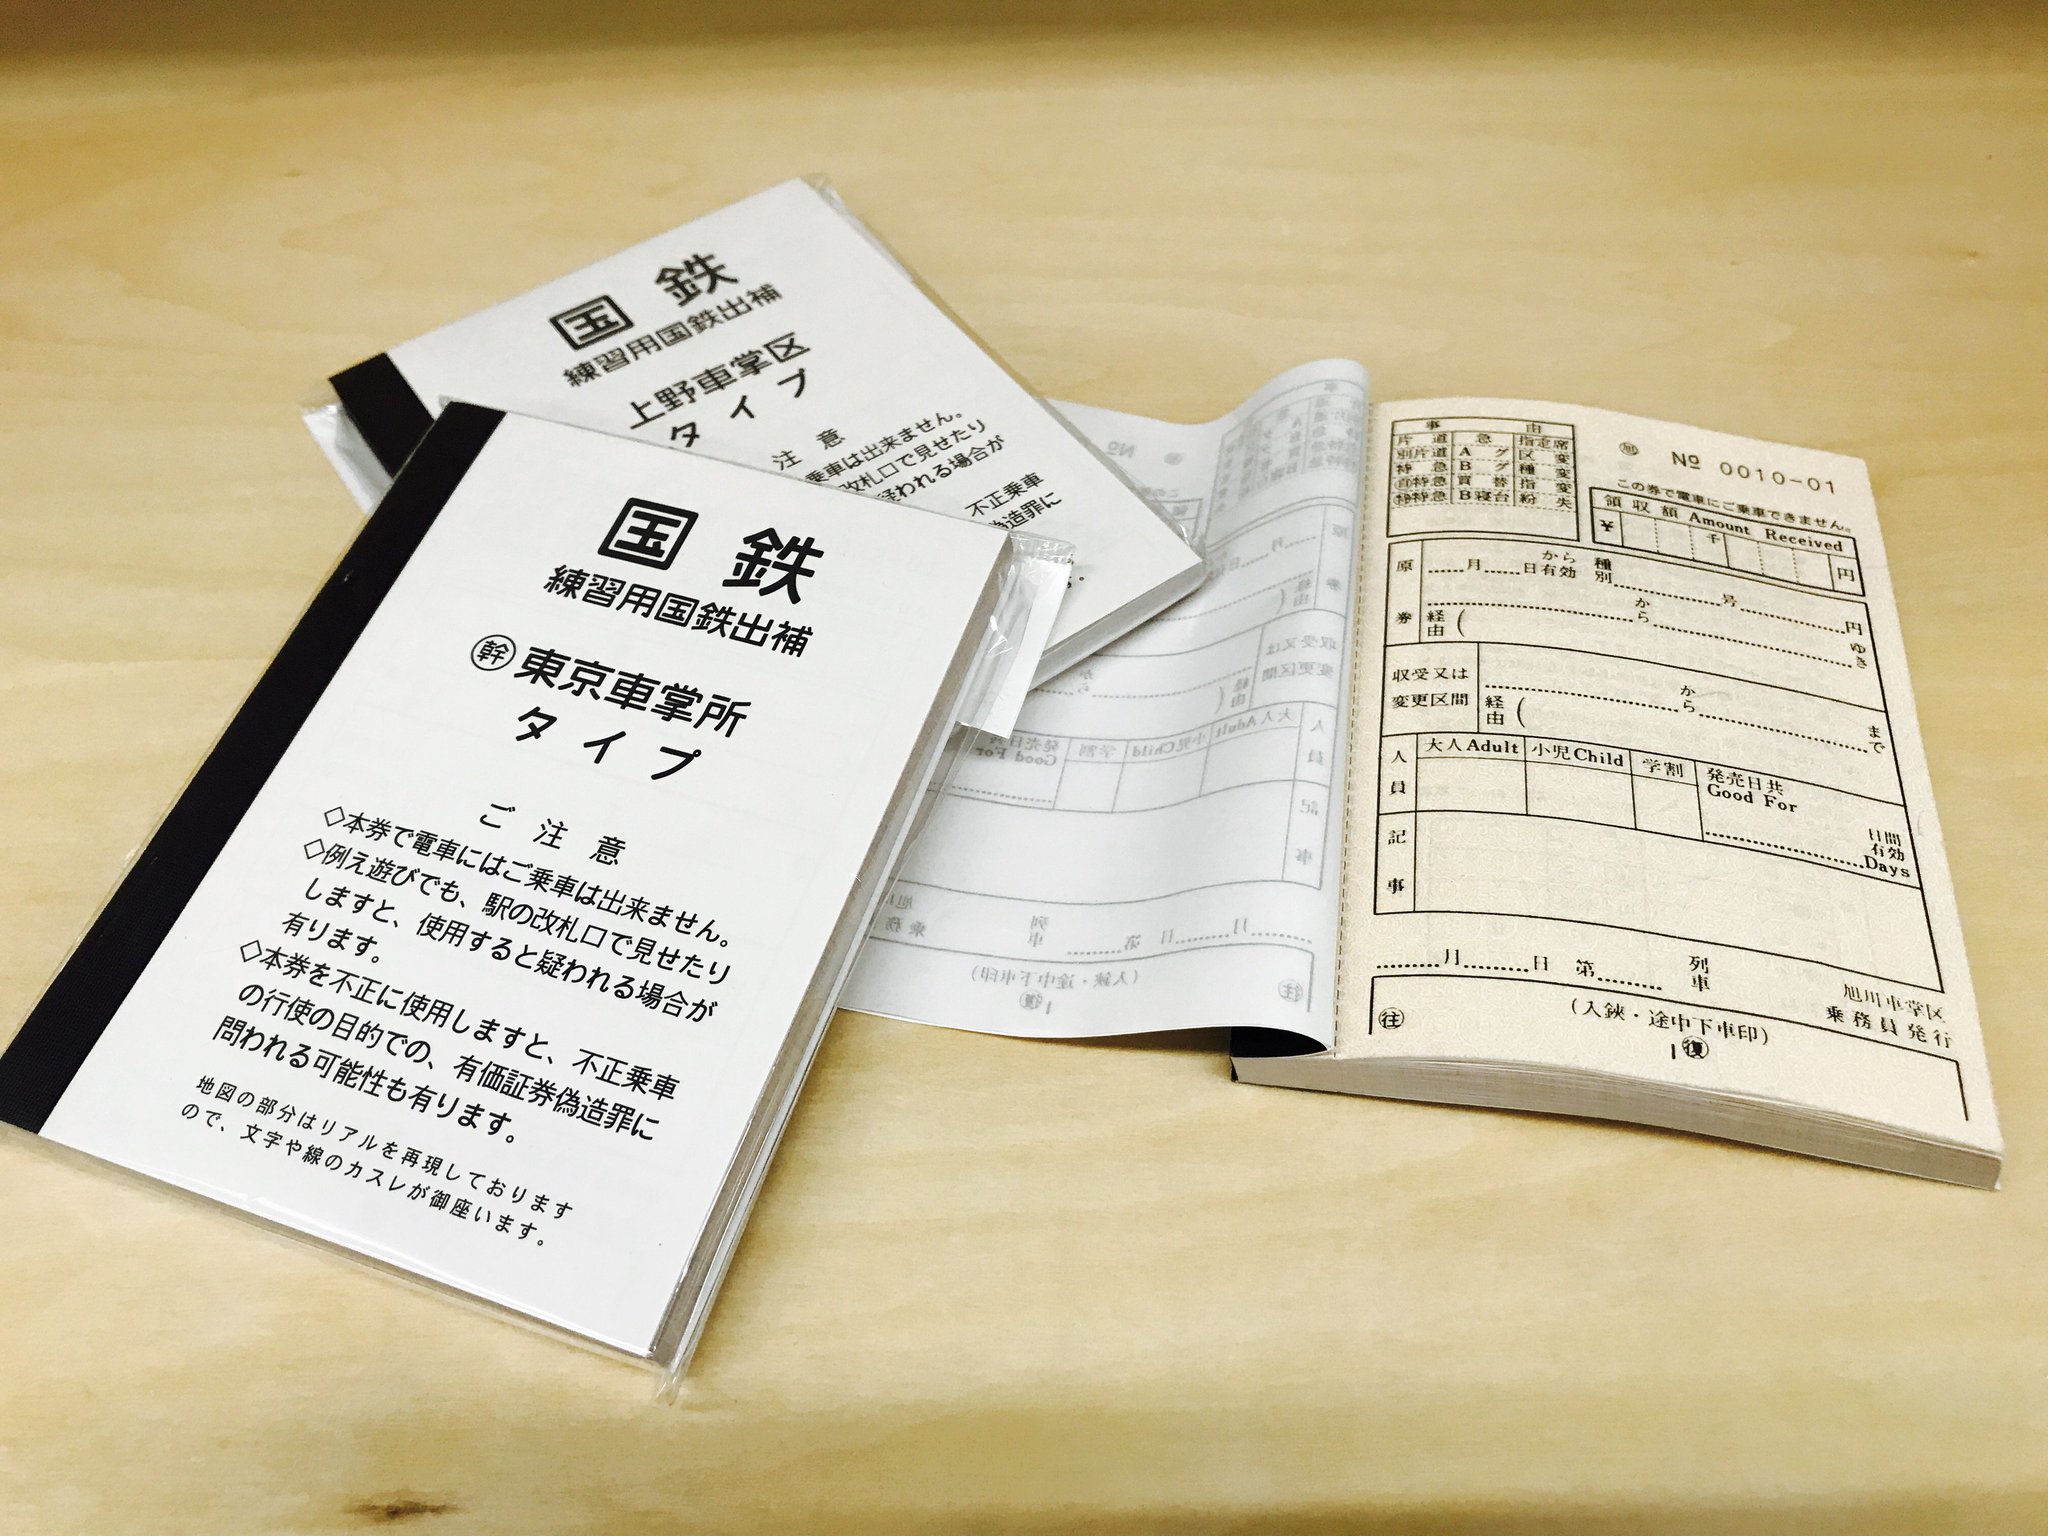 国鉄
練習用国鉄出補
上野車掌区
タイプ
注意
乗車は出来ません。
改札口で見せたり
疑われる場合が
不正乗車
偽造罪に
国鉄
練習用国鉄出補
㊩東京車掌所
タイプ
ご注意
◇本券で電車にはご乗車は出来ません。
◇例え遊びでも、駅の改札口で見せたり
しますと、使用すると疑われる場合が
有ります。
◇本券を不正に使用しますと、不正乗車
の行使の目的での、有価証券偽造罪に
問われる可能性も有ります。
地図の部分はリアルを再現しております
ので、文字や線のカスレが御座います。
事由
片道 急 指定席
別片道 A グ 区変
特急 B グ 種変
自特急 買替 指変
B寝台 紛失
№ 0010-01
この券で電車にご乗車できません。
領収額 Amount Received
¥ 千 円
原券
月 日から有効 種別 号 円
から ゆき
経由(
収受又は変更区間
から まで
経由(
人員
大人Adult 小児Child 学割 発売日共 Good For 日間有効 Days
記事
月 日 第 列車
旭川車掌区
乗務員発行
(入鋏・途中下車印)
往
復